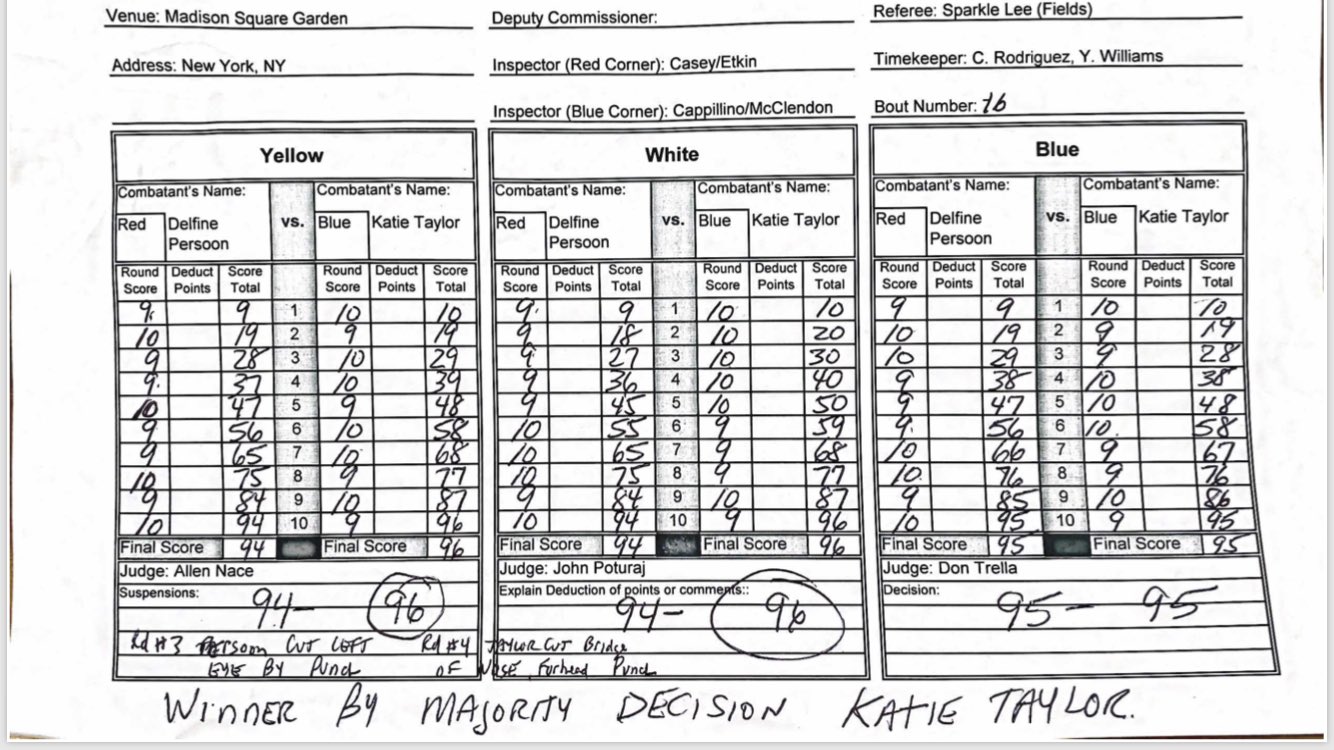 Venue: Madison Square Garden Deputy Commissioner: Referee: Sparkle Lee (Fields)
Address: New York, NY Inspector (Red Corner): Casey/Etkin Timekeeper: C. Rodriguez, Y. Williams
Inspector (Blue Corner): Cappillino/McClendon Bout Number: 16
Yellow White Blue
Combatant's Name: Combatant's Name: Combatant's Name: Combatant's Name: Combatant's Name: Combatant's Name:
Red Delfine vs. Blue Katie Taylor Red Delfine vs. Blue Katie Taylor Red Delfine vs. Blue Katie Taylor
Persoon Persoon Persoon
Round Deduct Score Round Deduct Score Round Deduct Score Round Deduct Score Round Deduct Score Round Deduct Score
Score Points Total Score Points Total Score Points Total Score Points Total Score Points Total Score Points Total
9 9 1 10 10 9 9 1 10 10 9 9 1 10 10
10 19 2 9 19 9 18 2 10 20 10 19 2 9 19
9 28 3 10 29 9 27 3 10 30 10 29 3 9 28
9 37 4 10 39 9 36 4 10 40 9 38 4 10 38
10 47 5 9 48 9 45 5 10 50 9 47 5 10 48
9 56 6 10 58 10 55 6 9 59 9 56 6 10 58
9 65 7 10 68 10 65 7 9 68 10 66 7 9 67
10 75 8 9 77 10 75 8 9 77 10 76 8 9 76
9 84 9 10 87 9 84 9 10 87 9 85 9 10 86
10 94 10 9 96 10 94 10 9 96 10 95 10 9 95
Final Score 94 Final Score 96 Final Score 94 Final Score 96 Final Score 95 Final Score 95
Judge: Allen Nace Judge: John Poturaj Judge: Don Trella
Suspensions: Explain Deduction of points or comments:: Decision:
94- 96 94- 96 95- 95
Rd #3 PERSOON CUT LEFT Rd #4 TAYLOR CUT Bridge
EYE BY PUNCH OF NOSE, Forhead Punch
WINNER BY MAJORITY DECISION KATIE TAYLOR.